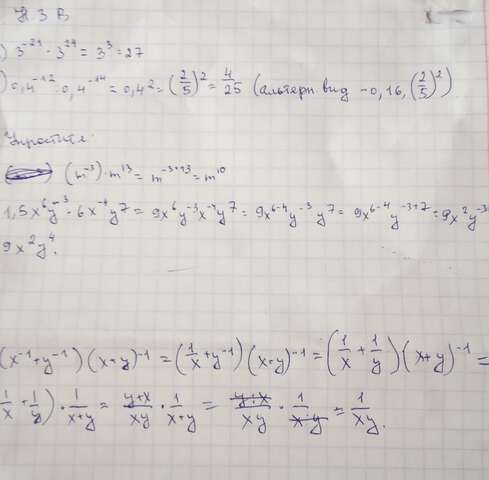 Н. З В
) 3⁻²¹ · 3²⁴ = 3³ = 27
) 0,4⁻¹² : 0,4⁻¹⁴ = 0,4² = (2/5)² = 4/25 (альтерн вид - 0,16, (2/5)²)
(m⁻³) · m¹³ = m⁻³⁺¹³ = m¹⁰
1,5x⁶y⁻³ · 6x⁻⁴y⁷ = 9x⁶y⁻³x⁻⁴y⁷ = 9x⁶⁻⁴y⁻³y⁷ = 9x⁶⁻⁴y⁻³⁺⁷ = 9x²y⁻³
9x²y⁴.
(x⁻¹+y⁻¹)(x+y)⁻¹ = (1/x + y⁻¹)(x+y)⁻¹ = (1/x + 1/y)(x+y)⁻¹ =
1/x + 1/y) · 1/x+y = y+x/xy · 1/x+y = y+x/xy · 1/x+y = 1/xy.